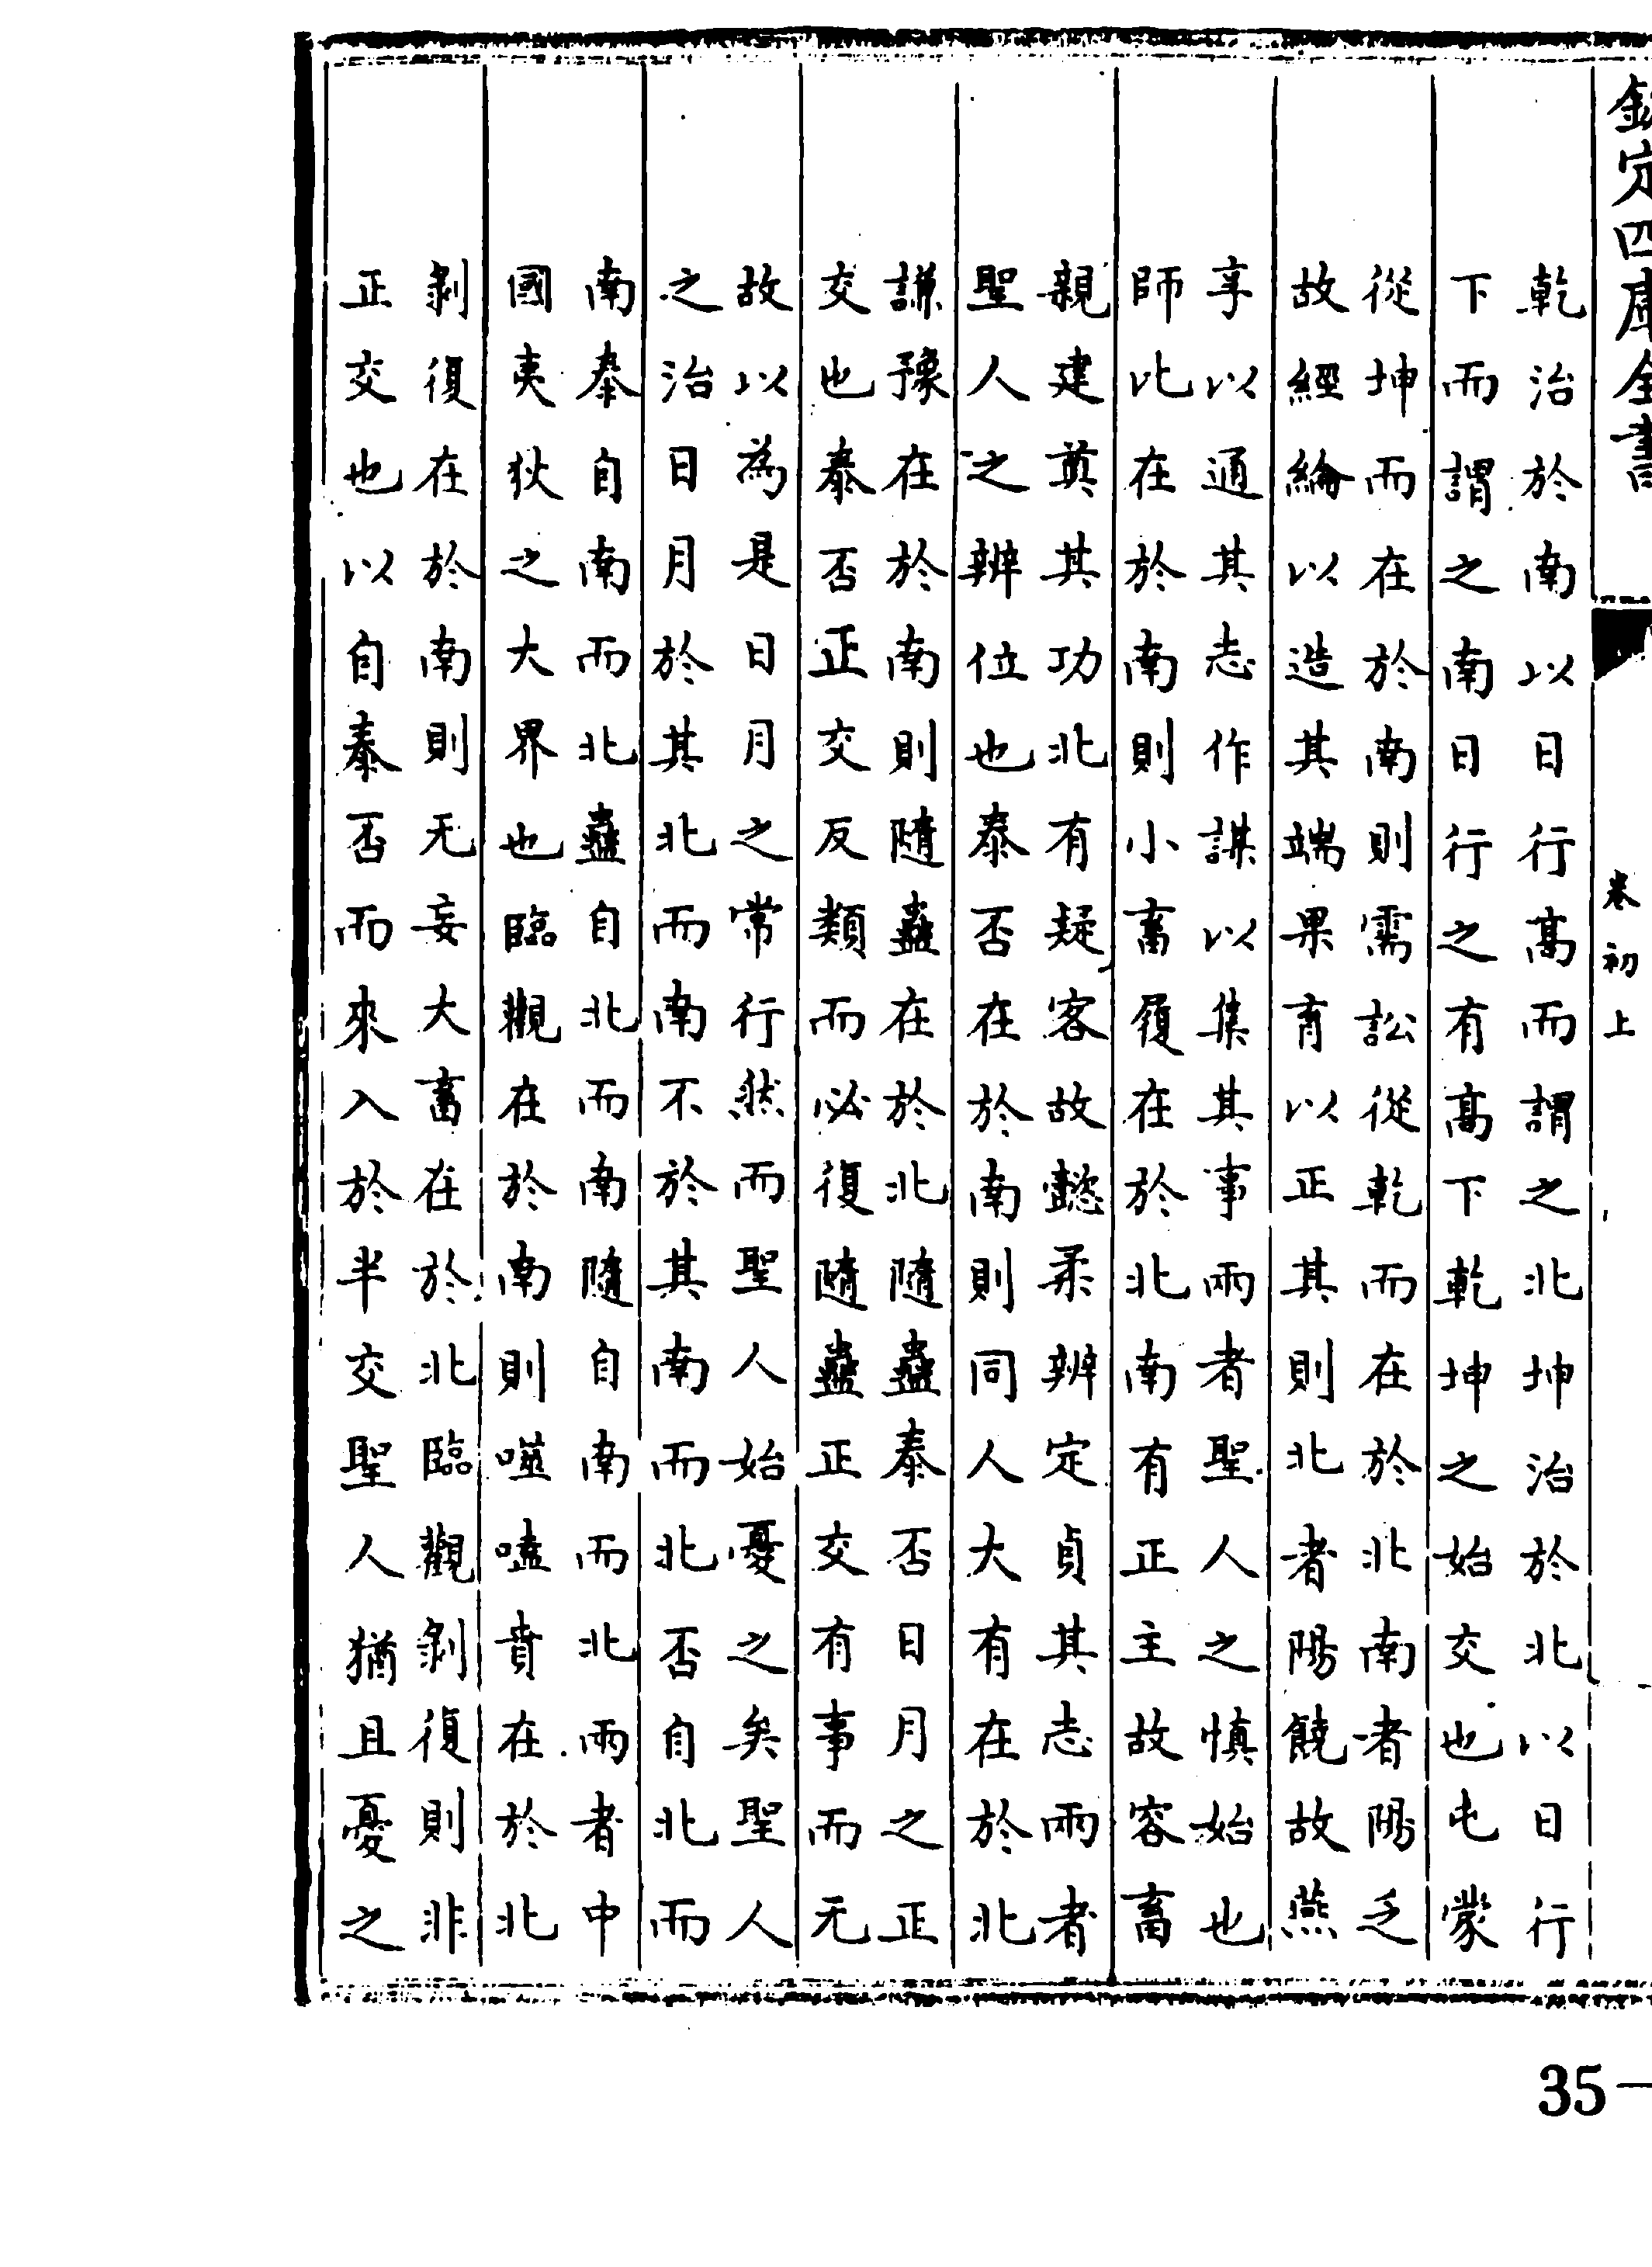 欽定四庫全書
卷初上
乾治於南以日行髙而謂之北坤治於北以日行
下而謂之南日行之有髙下乾坤之始交也屯蒙
從坤而在於南則需訟從乾而在於北南者陽乏
故經綸以造其端果育以正其則北者陽饒故燕
享以通其志作謀以集其事兩者聖人之慎始也
師比在於南則小畜履在於北南有正主故容畜
親建奠其功北有疑客故懿柔辨定貞其志兩者
聖人之辨位也泰否在於南則同人大有在於北
謙豫在於南則隨蠱在於北隨蠱泰否日月之正
交也泰否正交反類而必復隨蠱正交有事而无
故以為是日月之常行然而聖人始憂之矣聖人
之治日月於其北而南不於其南而北否自北而
南泰自南而北蠱自北而南隨自南而北兩者中
國夷狄之大界也臨觀在於南則噬嗑賁在於北
剝復在於南則无妄大畜在於北臨觀剝復則非
正交也以自泰否而來入於半交聖人猶且憂之
35